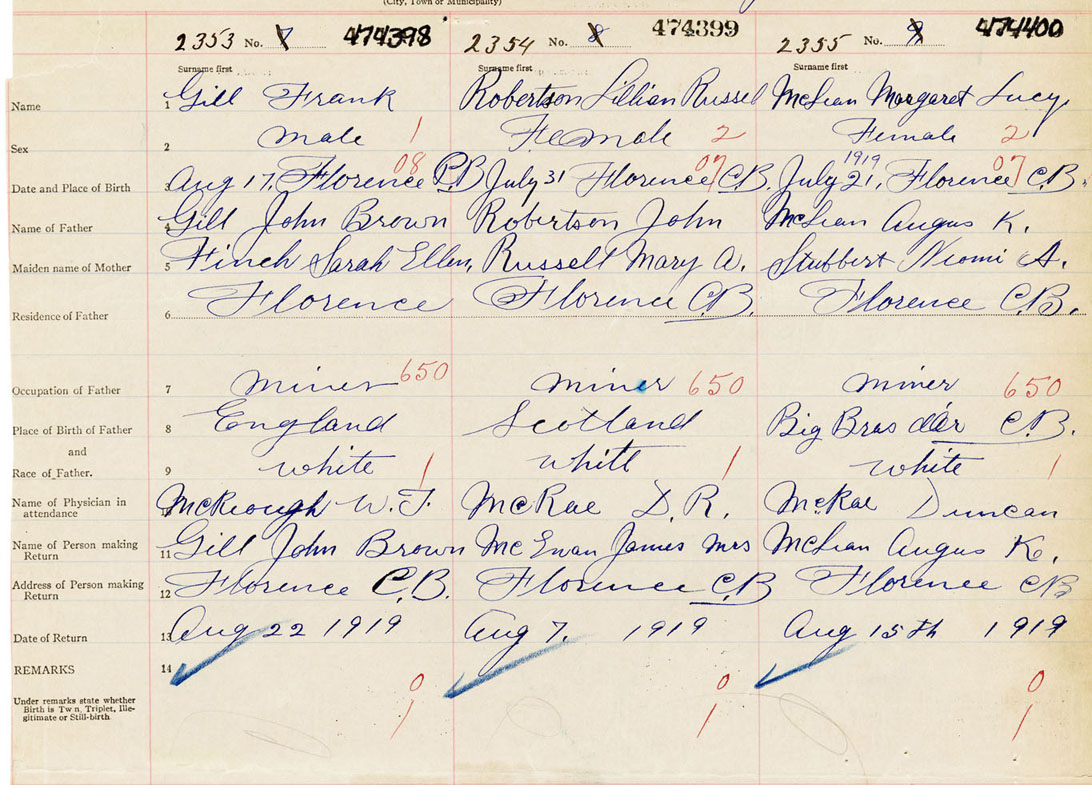 (City, Town or Municipality)
2353 No. 7 474398 2354 No. 8 474399 2355 No. 9 474400
Surname first Surname first Surname first
Name 1 Gill Frank Robertson Lillian Russel McLean Margaret Lucy
Sex 2 male 1 Female 2 Female 2
08 07 1919 07
Date and Place of Birth 3 Aug 17, Florence C.B. July 31 Florence C.B. July 21, Florence C.B.
Name of Father 4 Gill John Brown Robertson John McLean Angus K.
Maiden name of Mother 5 Finch Sarah Ellen, Russell Mary A. Stubbert Neomi A.
Residence of Father 6 Florence Florence C.B. Florence C.B.
Occupation of Father 7 miner 650 miner 650 miner 650
Place of Birth of Father 8 England Scotland Big Bras d'or C.B.
and
Race of Father. 9 white 1 white 1 white 1
Name of Physician in
attendance McKeough W. F. McRae D. R. McRae Duncan
Name of Person making
Return 11 Gill John Brown McEwan James Mrs McLean Angus K.
Address of Person making
Return 12 Florence C.B. Florence C.B Florence CB
Date of Return 13 Aug 22 1919 Aug 7. 1919 Aug 15th 1919
REMARKS 14
0 0 0
Under remarks state whether
Birth is Twn, Triplet, Ille-
gitimate or Still-birth. 1 1 1